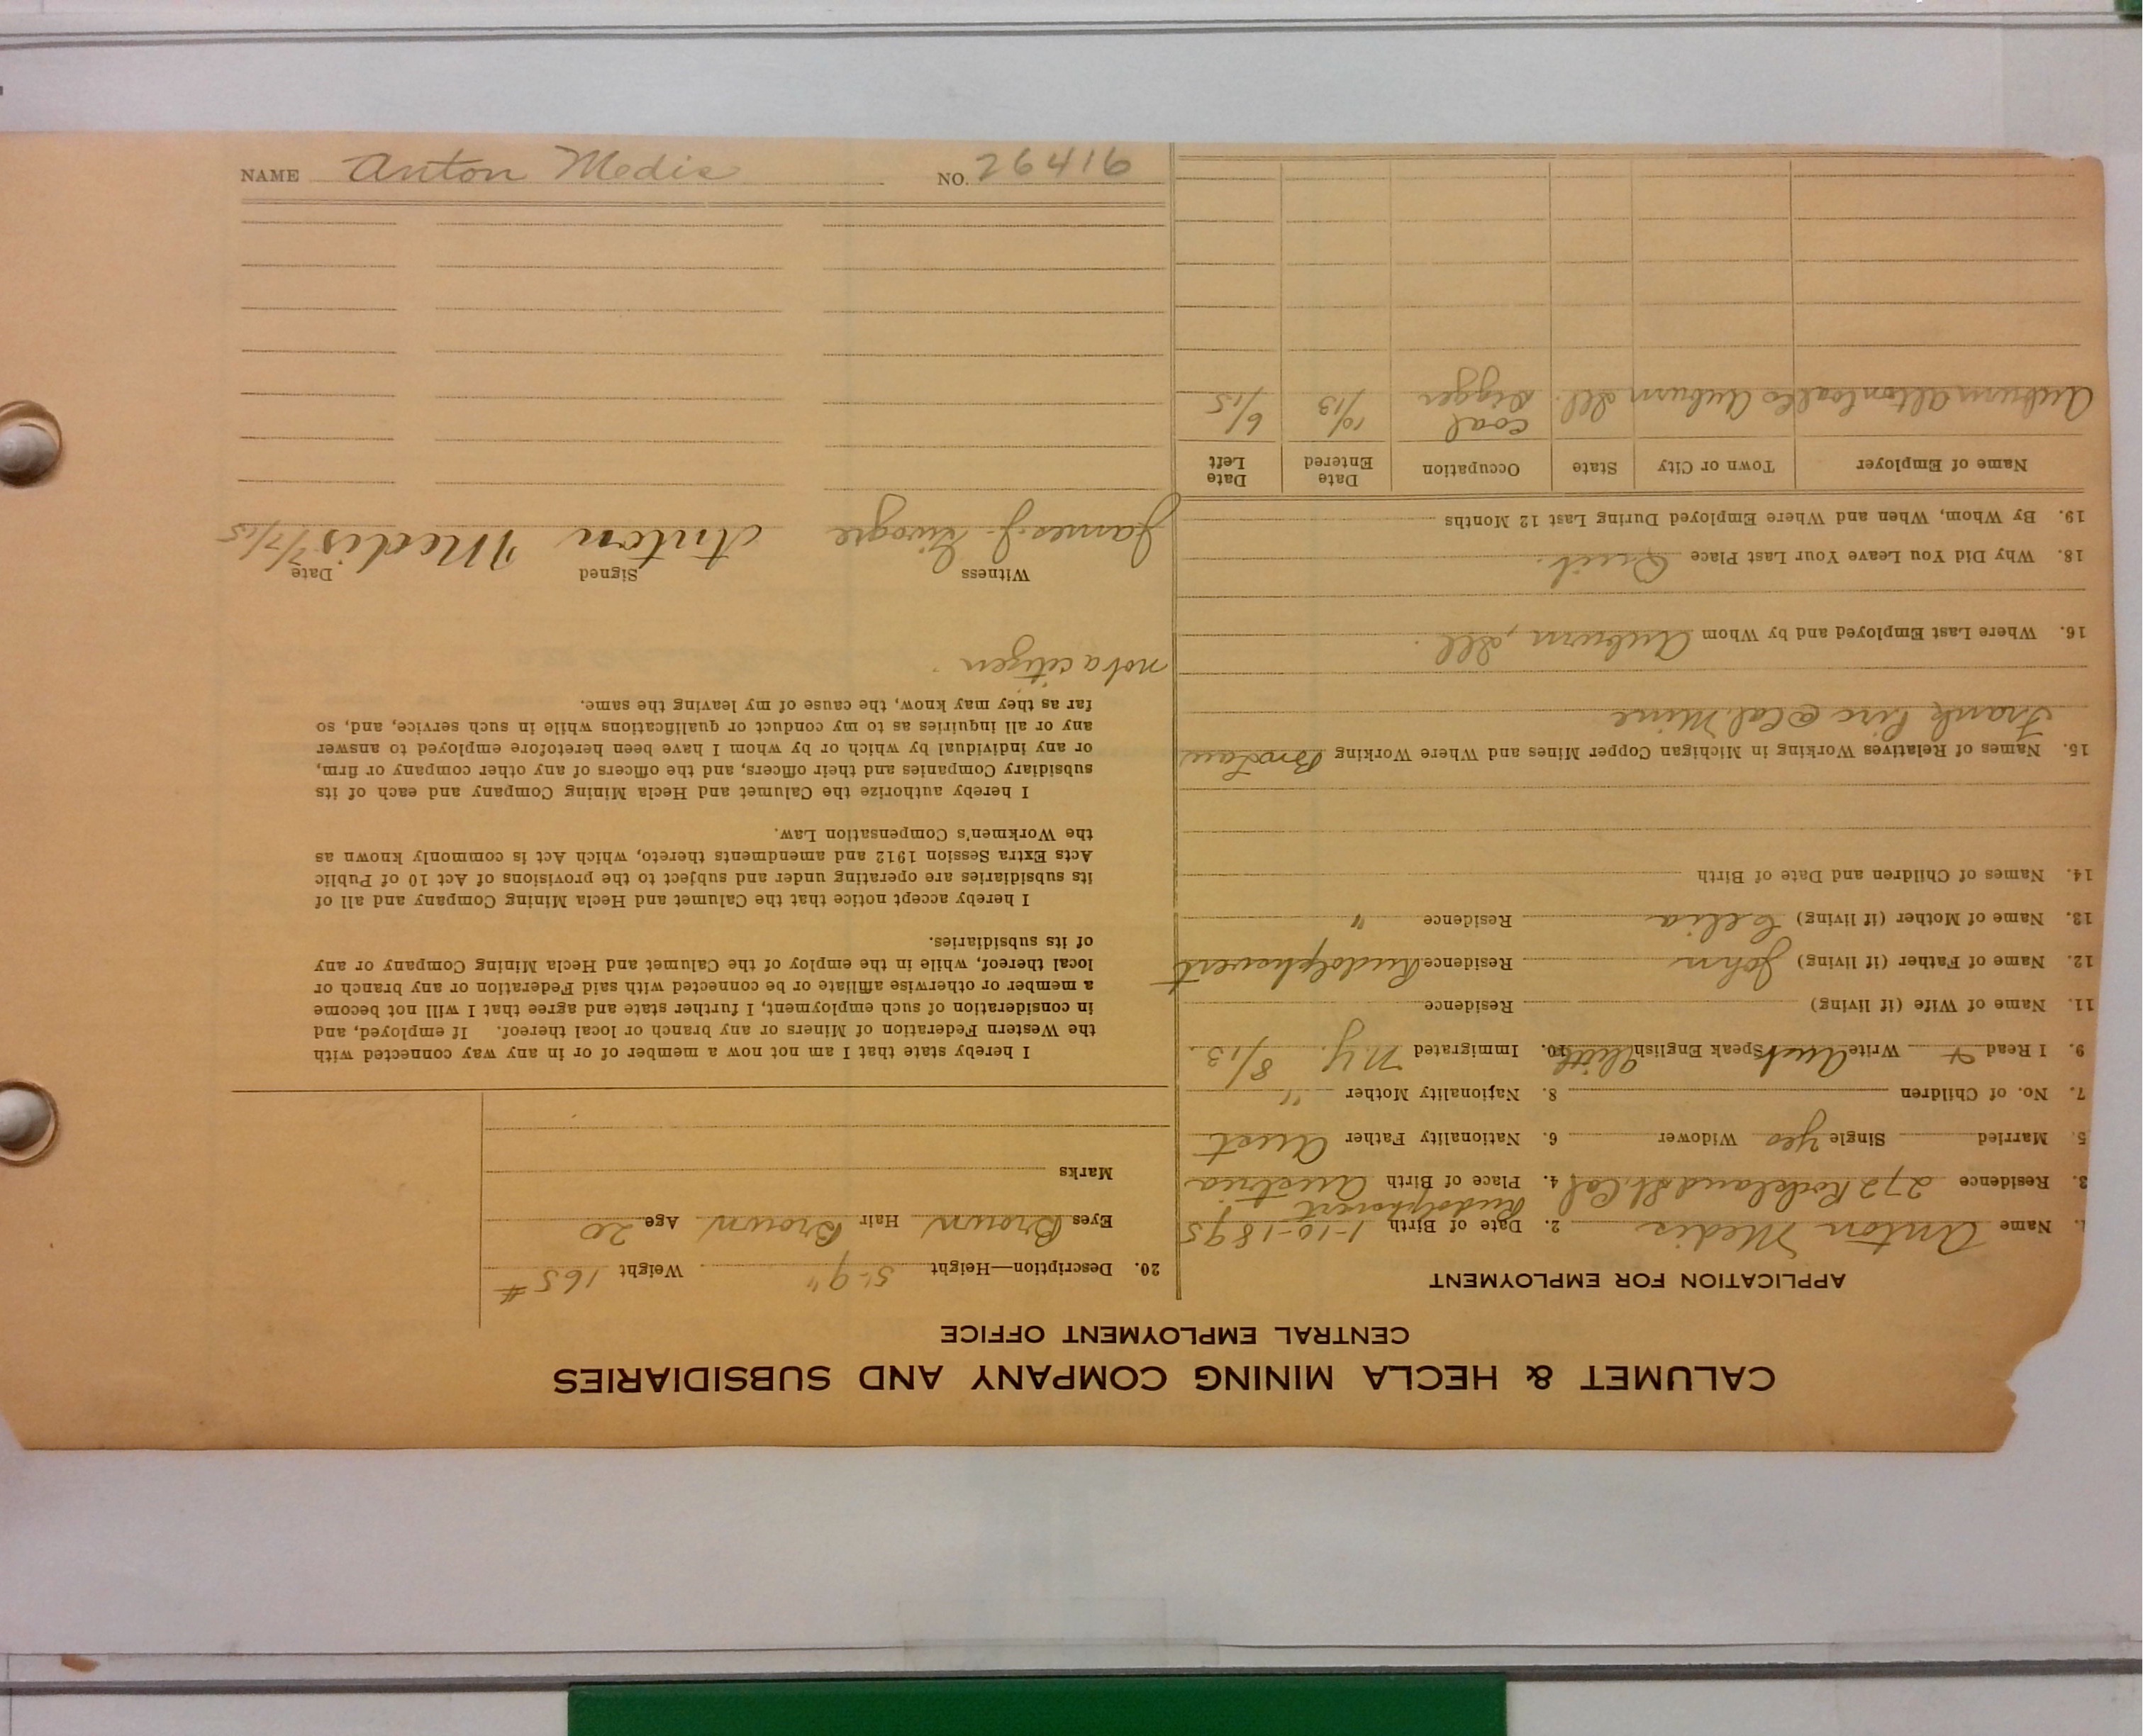 CALUMET & HECLA MINING COMPANY AND SUBSIDIARIES
CENTRAL EMPLOYMENT OFFICE
APPLICATION FOR EMPLOYMENT
1. Name Anton Medis 2. Date of Birth 1-10-1895
Rudolphovert
3. Residence 272 Rockland St. Cal 4. Place of Birth Austria
5. Married Single Yes Widower 6. Nationality Father Aust
7. No. of Children 8. Nationality Mother "
9. I Read & Write Aust Speak English Little 10. Immigrated N.Y. 8/13
11. Name of Wife (if living) Residence
12. Name of Father (if living) John Residence Rudolphovert
13. Name of Mother (if living) Residence "
14. Names of Children and Date of Birth
15. Names of Relatives Working in Michigan Copper Mines and Where Working Bro Law
Frank @ Cal. Mine
16. Where Last Employed and by Whom Auburn, Ill.
18. Why Did You Leave Your Last Place Quit.
19. By Whom, When and Where Employed During Last 12 Months
Name of Employer Town or City State Occupation Date Entered Date Left
Auburn Alton Coal Co Auburn Ill. Coal Digger 10/13 6/15
20. Description—Height 5'-9" Weight 165 #
Eyes Brown Hair Brown Age 20
Marks
I hereby state that I am not now a member of or in any way connected with
the Western Federation of Miners or any branch or local thereof. If employed, and
in consideration of such employment, I further state and agree that I will not become
a member or otherwise affiliate or be connected with said Federation or any branch or
local thereof, while in the employ of the Calumet and Hecla Mining Company or any
of its subsidiaries.
I hereby accept notice that the Calumet and Hecla Mining Company and all of
its subsidiaries are operating under and subject to the provisions of Act 10 of Public
Acts Extra Session 1912 and amendments thereto, which Act is commonly known as
the Workmen's Compensation Law.
I hereby authorize the Calumet and Hecla Mining Company and each of its
subsidiary Companies and their officers, and the officers of any other company or firm,
or any individual by which or by whom I have been heretofore employed to answer
any or all inquiries as to my conduct or qualifications while in such service, and, so
far as they may know, the cause of my leaving the same.
not a citizen.
Witness Signed Date
James J. Anton Medis 7/7/15
NAME Anton Medis NO. 26416